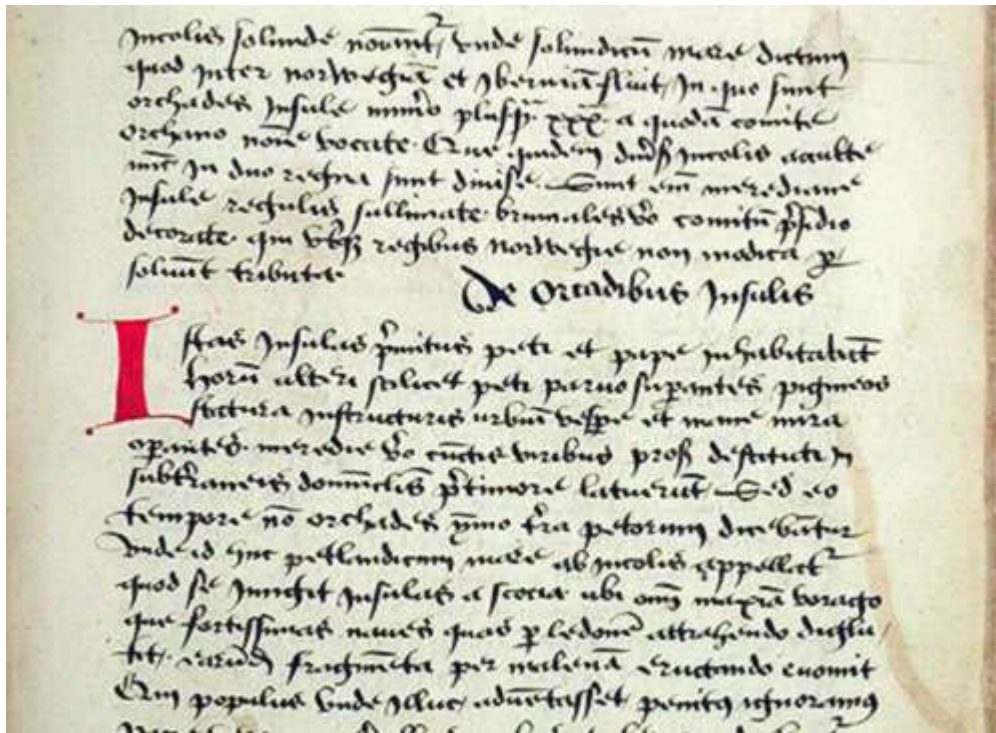 Incolis solunde nominat^r, vnde solundicũ mare dictum
quod inter norwegiã et yberniã fluit, In quo sunt
orchades Insule nũero plusqᷓ xxx. a quodã comite
orchano noĩe vocate. Que quidem diũs̃ incolis aculte
nũc in duo regna sunt diuise. Sunt em̃ merediane
Insule regulis sullimate. brumales v̊o comitũ p̃sidio
decorate. qui vtiqꝫ regibus norwegie non modica ꝑ-
soluũt tributa
De Orcadibus Insulis
Istas Insulas p̃mitus peti et pape inhabitabãt
horũ alteri scilicet peti paruo suꝑantes pigmeos
statura in structuris urbiũ vesꝑe et mane mira
oꝑantes. meredie v̊o cũctis viribus prosꝰ destituti In
subt̃raneis domũclis p̃timore latuerũt. Sed eo
tempore nõ orchades ymo t̃ra petorum dicebãtur
vnde adhuc petlandicum mare ab incolis appellat^r
quod se iungit Insulas a scocia ubi om̃ maxĩa vorago
que fortissimas naues quas ꝑ ledonẽ attrahendo diglu
tit, earũdẽ fragmẽta per malenã eructando euomit
Qui populus vnde illuc aduẽtasset penitꝰ ignoramꝰ